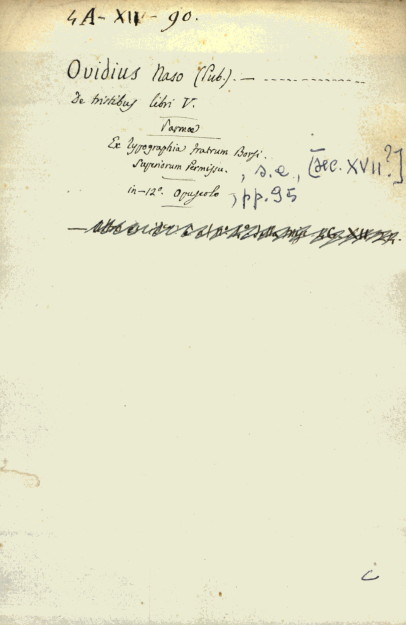 4A - XII - 90.
Ovidius Naso (Pub.). — - - - - - - - - - -
De tristibus libri V.
Parmae
Ex Typographia fratrum Borsi.
Superiorum Permissu. , s. a., [sec. XVII?]
in-12°. Opuscolo, pp. 95